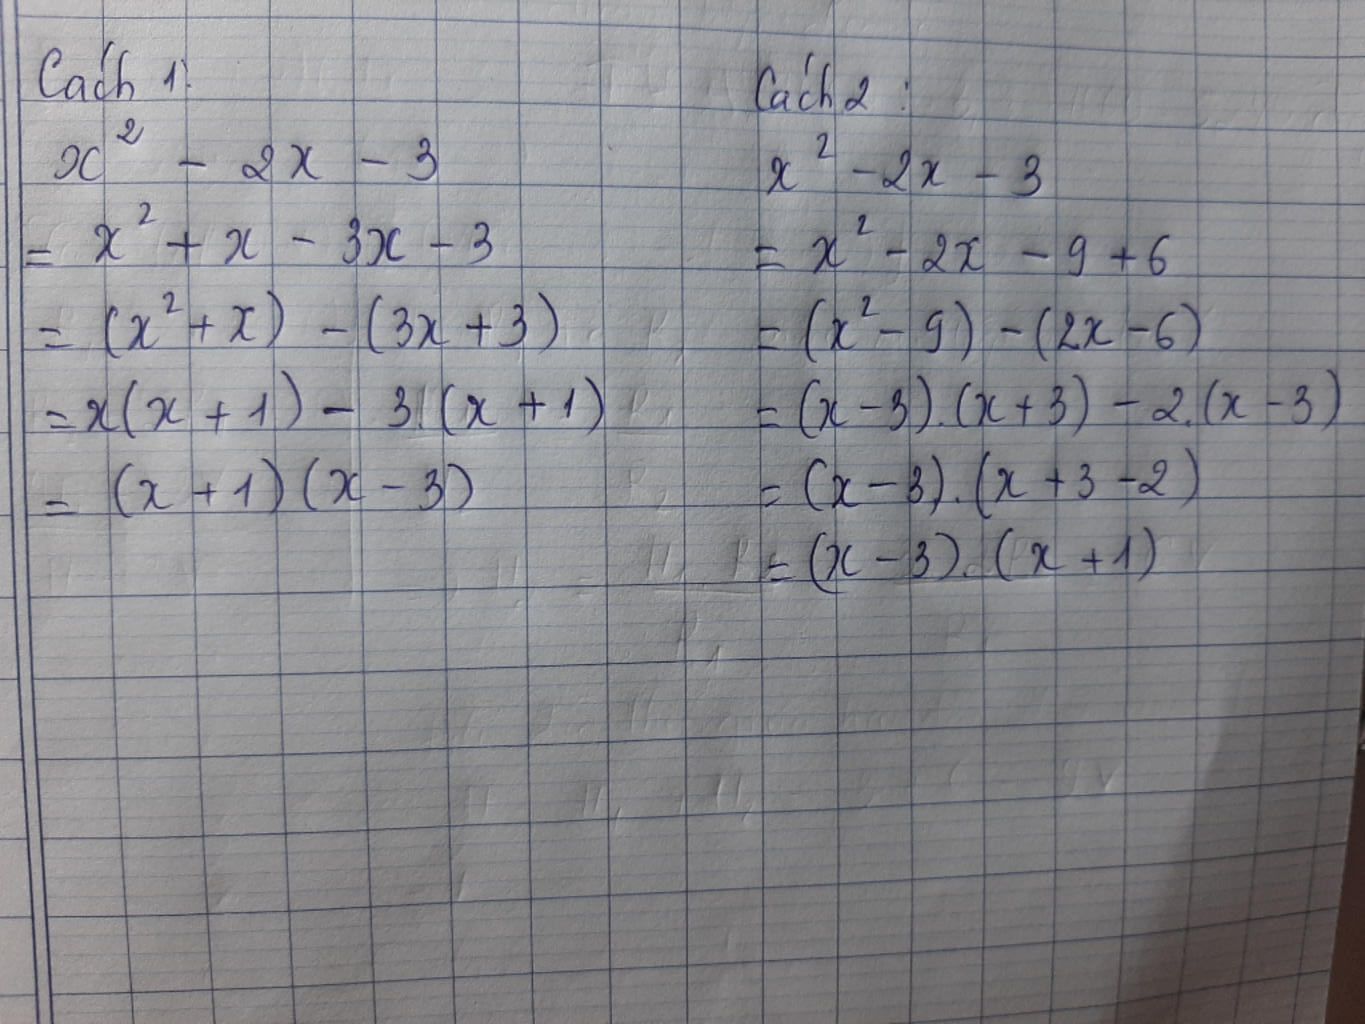 Cách 1:
x² - 2x - 3
= x² + x - 3x - 3
= (x² + x) - (3x + 3)
= x(x + 1) - 3.(x + 1)
= (x + 1)(x - 3)
Cách 2 :
x² - 2x - 3
= x² - 2x - 9 + 6
= (x² - 9) - (2x - 6)
= (x - 3).(x + 3) - 2.(x - 3)
= (x - 3).(x + 3 - 2)
= (x - 3).(x + 1)